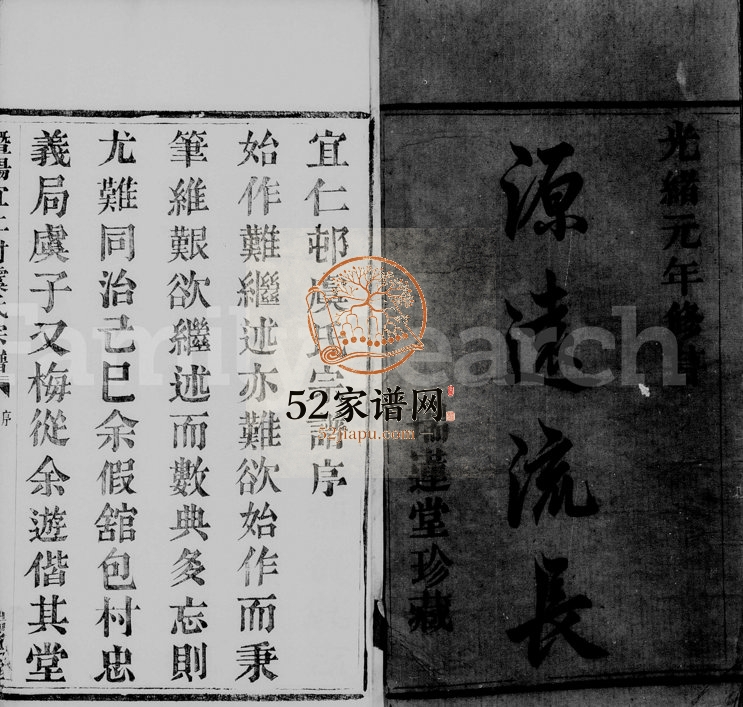 光緒元年修
源遠流長
蓮堂珍藏
宜仁邨虞氏宗譜序
始作難繼述亦難欲始作而秉
筆維艱欲繼述而數典多忘則
尤難同治己巳余假舘包村忠
義局虞子又梅從余遊偕其堂
暨陽宜仁村虞氏宗譜
序
FamilySearch
52家谱网
52jiapu.com